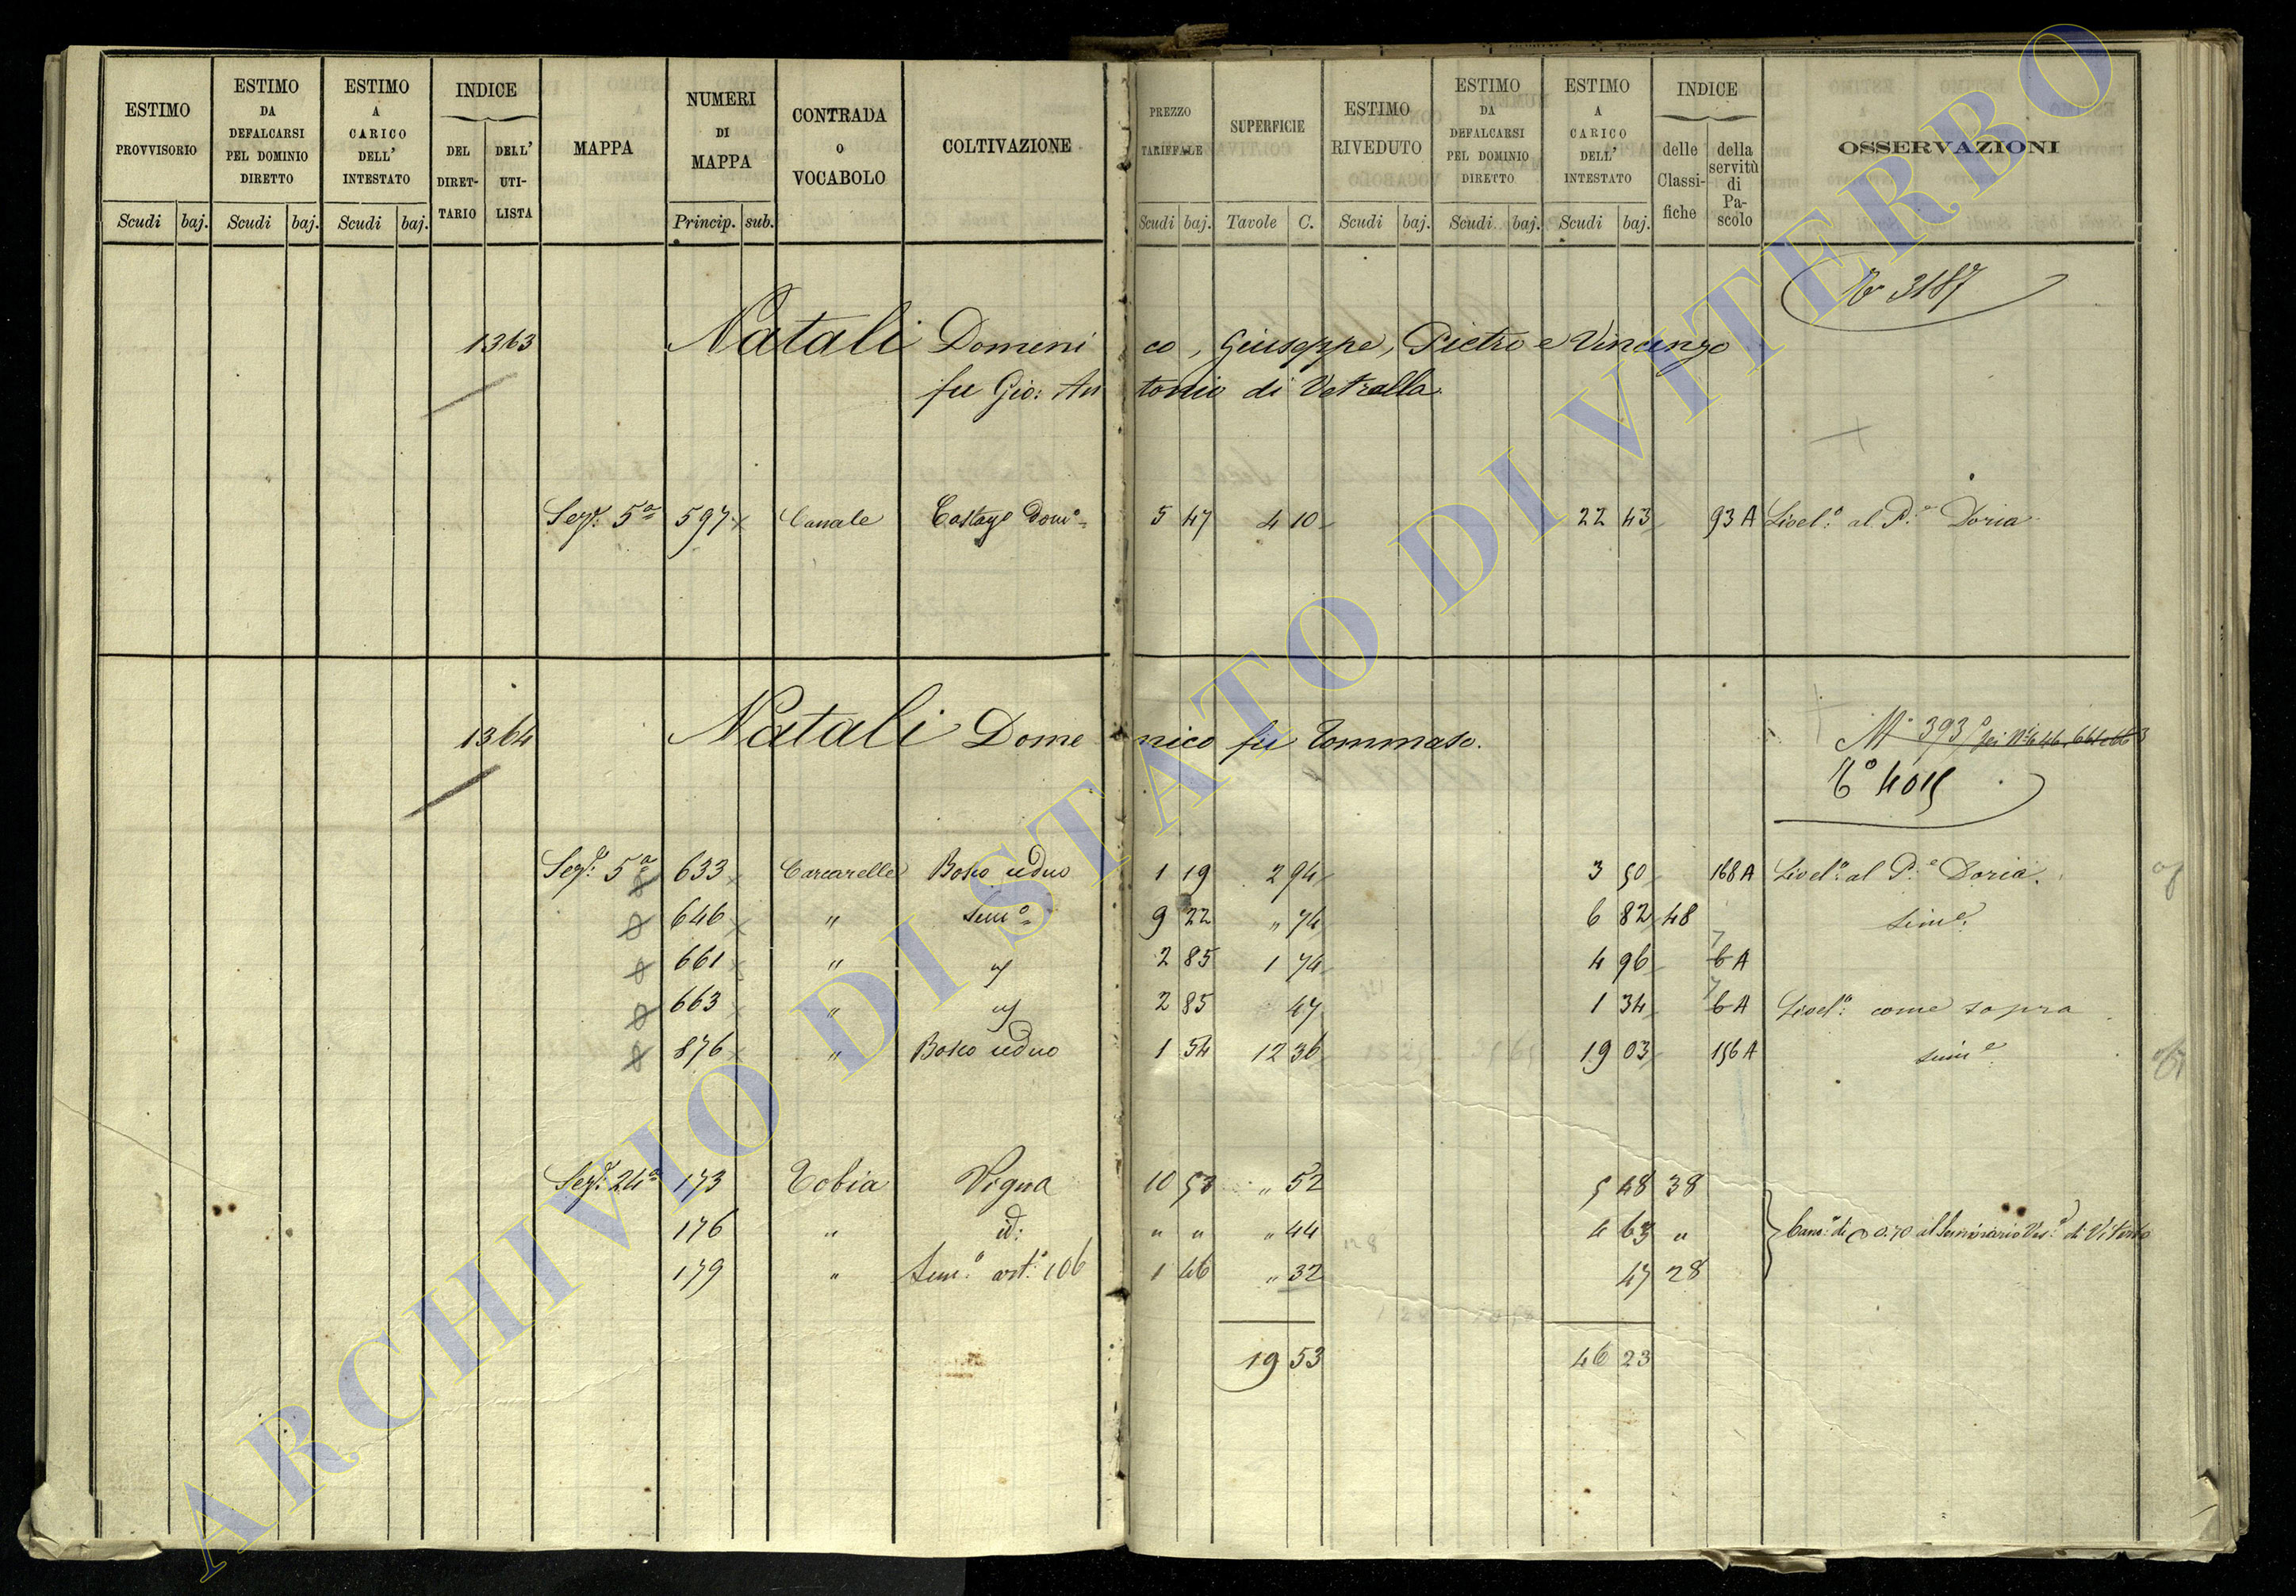 ESTIMO PROVVISORIO
Scudi baj.
ESTIMO DA DEFALCARSI PEL DOMINIO DIRETTO
Scudi baj.
ESTIMO A CARICO DELL' INTESTATO
Scudi baj.
INDICE
DEL DIRET-TARIO
DELL' UTI-LISTA
MAPPA
NUMERI DI MAPPA
Princip. sub.
CONTRADA O VOCABOLO
COLTIVAZIONE
PREZZO TARIFFALE
Scudi baj.
SUPERFICIE
Tavole C.
ESTIMO RIVEDUTO
Scudi baj.
ESTIMO DA DEFALCARSI PEL DOMINIO DIRETTO
Scudi baj.
ESTIMO A CARICO DELL' INTESTATO
Scudi baj.
INDICE
delle Classi-fiche
della servitù di Pa-scolo
OSSERVAZIONI
3187
1363 Natali Domenico, Giuseppe, Pietro e Vincenzo
fu Gio: Antonio di Vetralla
Sez: 5ª 597 Canale Castagº Domº 5 47 4 10 22 43 93 A Livelº al P.e Doria
1364 Natali Domenico fu Tommaso.
393
Tº 4015
Sez: 5ª 633 Carcarelle Bosco ceduo 1 19 2 94 3 50 168 A Livelº al P.e Doria
646 " Semº 9 22 " 74 6 82 48 Sime
661 " 2 85 1 74 4 96 7 6 A
663 " 2 85 47 1 34 7 6 A Livelº come sopra
876 " Bosco ceduo 1 54 12 36 19 03 156 A sime
Sez: 24ª 173 Tobia Vigna 10 53 " 52 5 48 38
176 " id: " " " 44 4 63 " Canº di 0.70 al Seminario Vesº di Viterbo
179 " Semº art: 106 1 46 " 32 47 28
19 53 46 23
ARCHIVIO DI STATO DI VITERBO